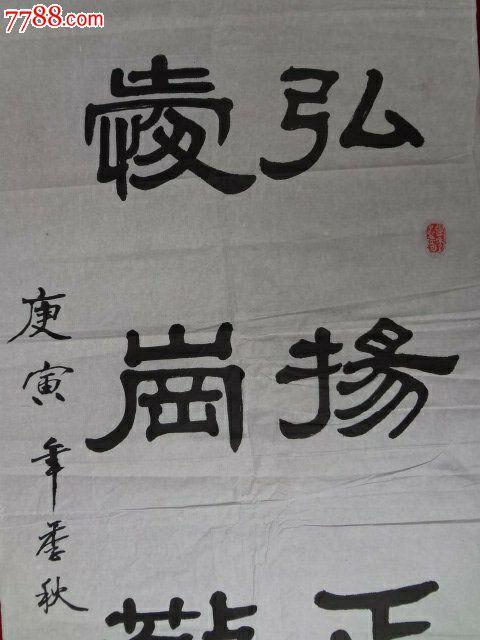 7788.com
弘揚正
愛崗敬
庚寅年季秋